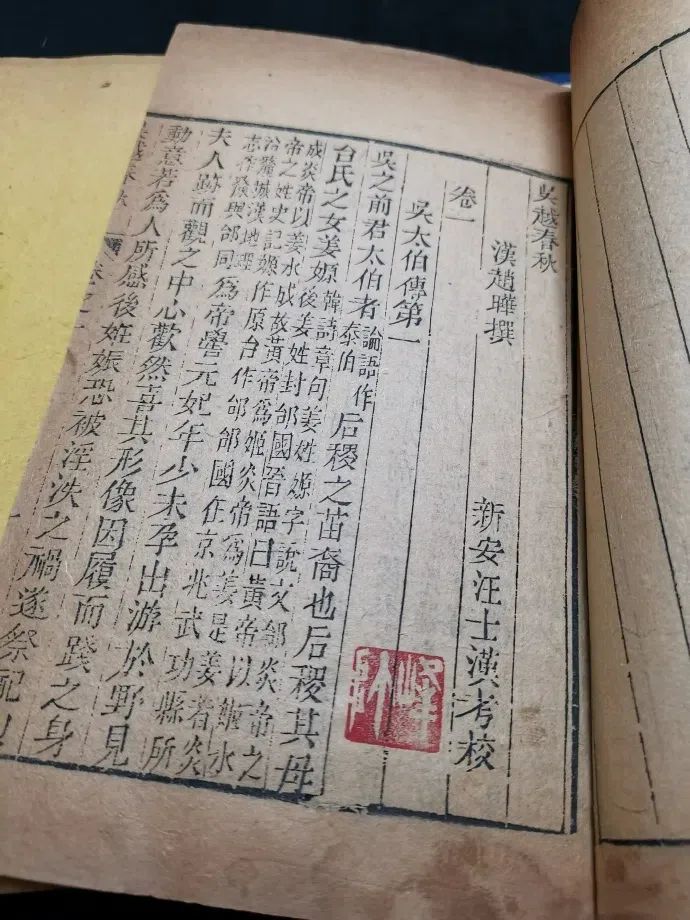 吳越春秋
漢趙曄撰
卷一 新安汪士漢考校
吳太伯傳第一
吳之前君太伯者論語作泰伯后稷之苗裔也后稷其母
台氏之女姜嫄韓詩章句姜姓嫄字說文邰炎帝之後姜姓封邰國晉語曰黃帝以姬水
成炎帝以姜水成故黃帝為姬炎帝為姜是姜者炎帝之姓史記嫄作原台作邰邰國在京兆武功縣所
治釐城漢地理志作斄與邰同為帝嚳元妃年少未孕出游於野見
大人跡而觀之中心歡然喜其形像因履而踐之身
動意若為人所感後妊娠恐被淫泆之禍遂祭祀以
吳越春秋 卷之一 一